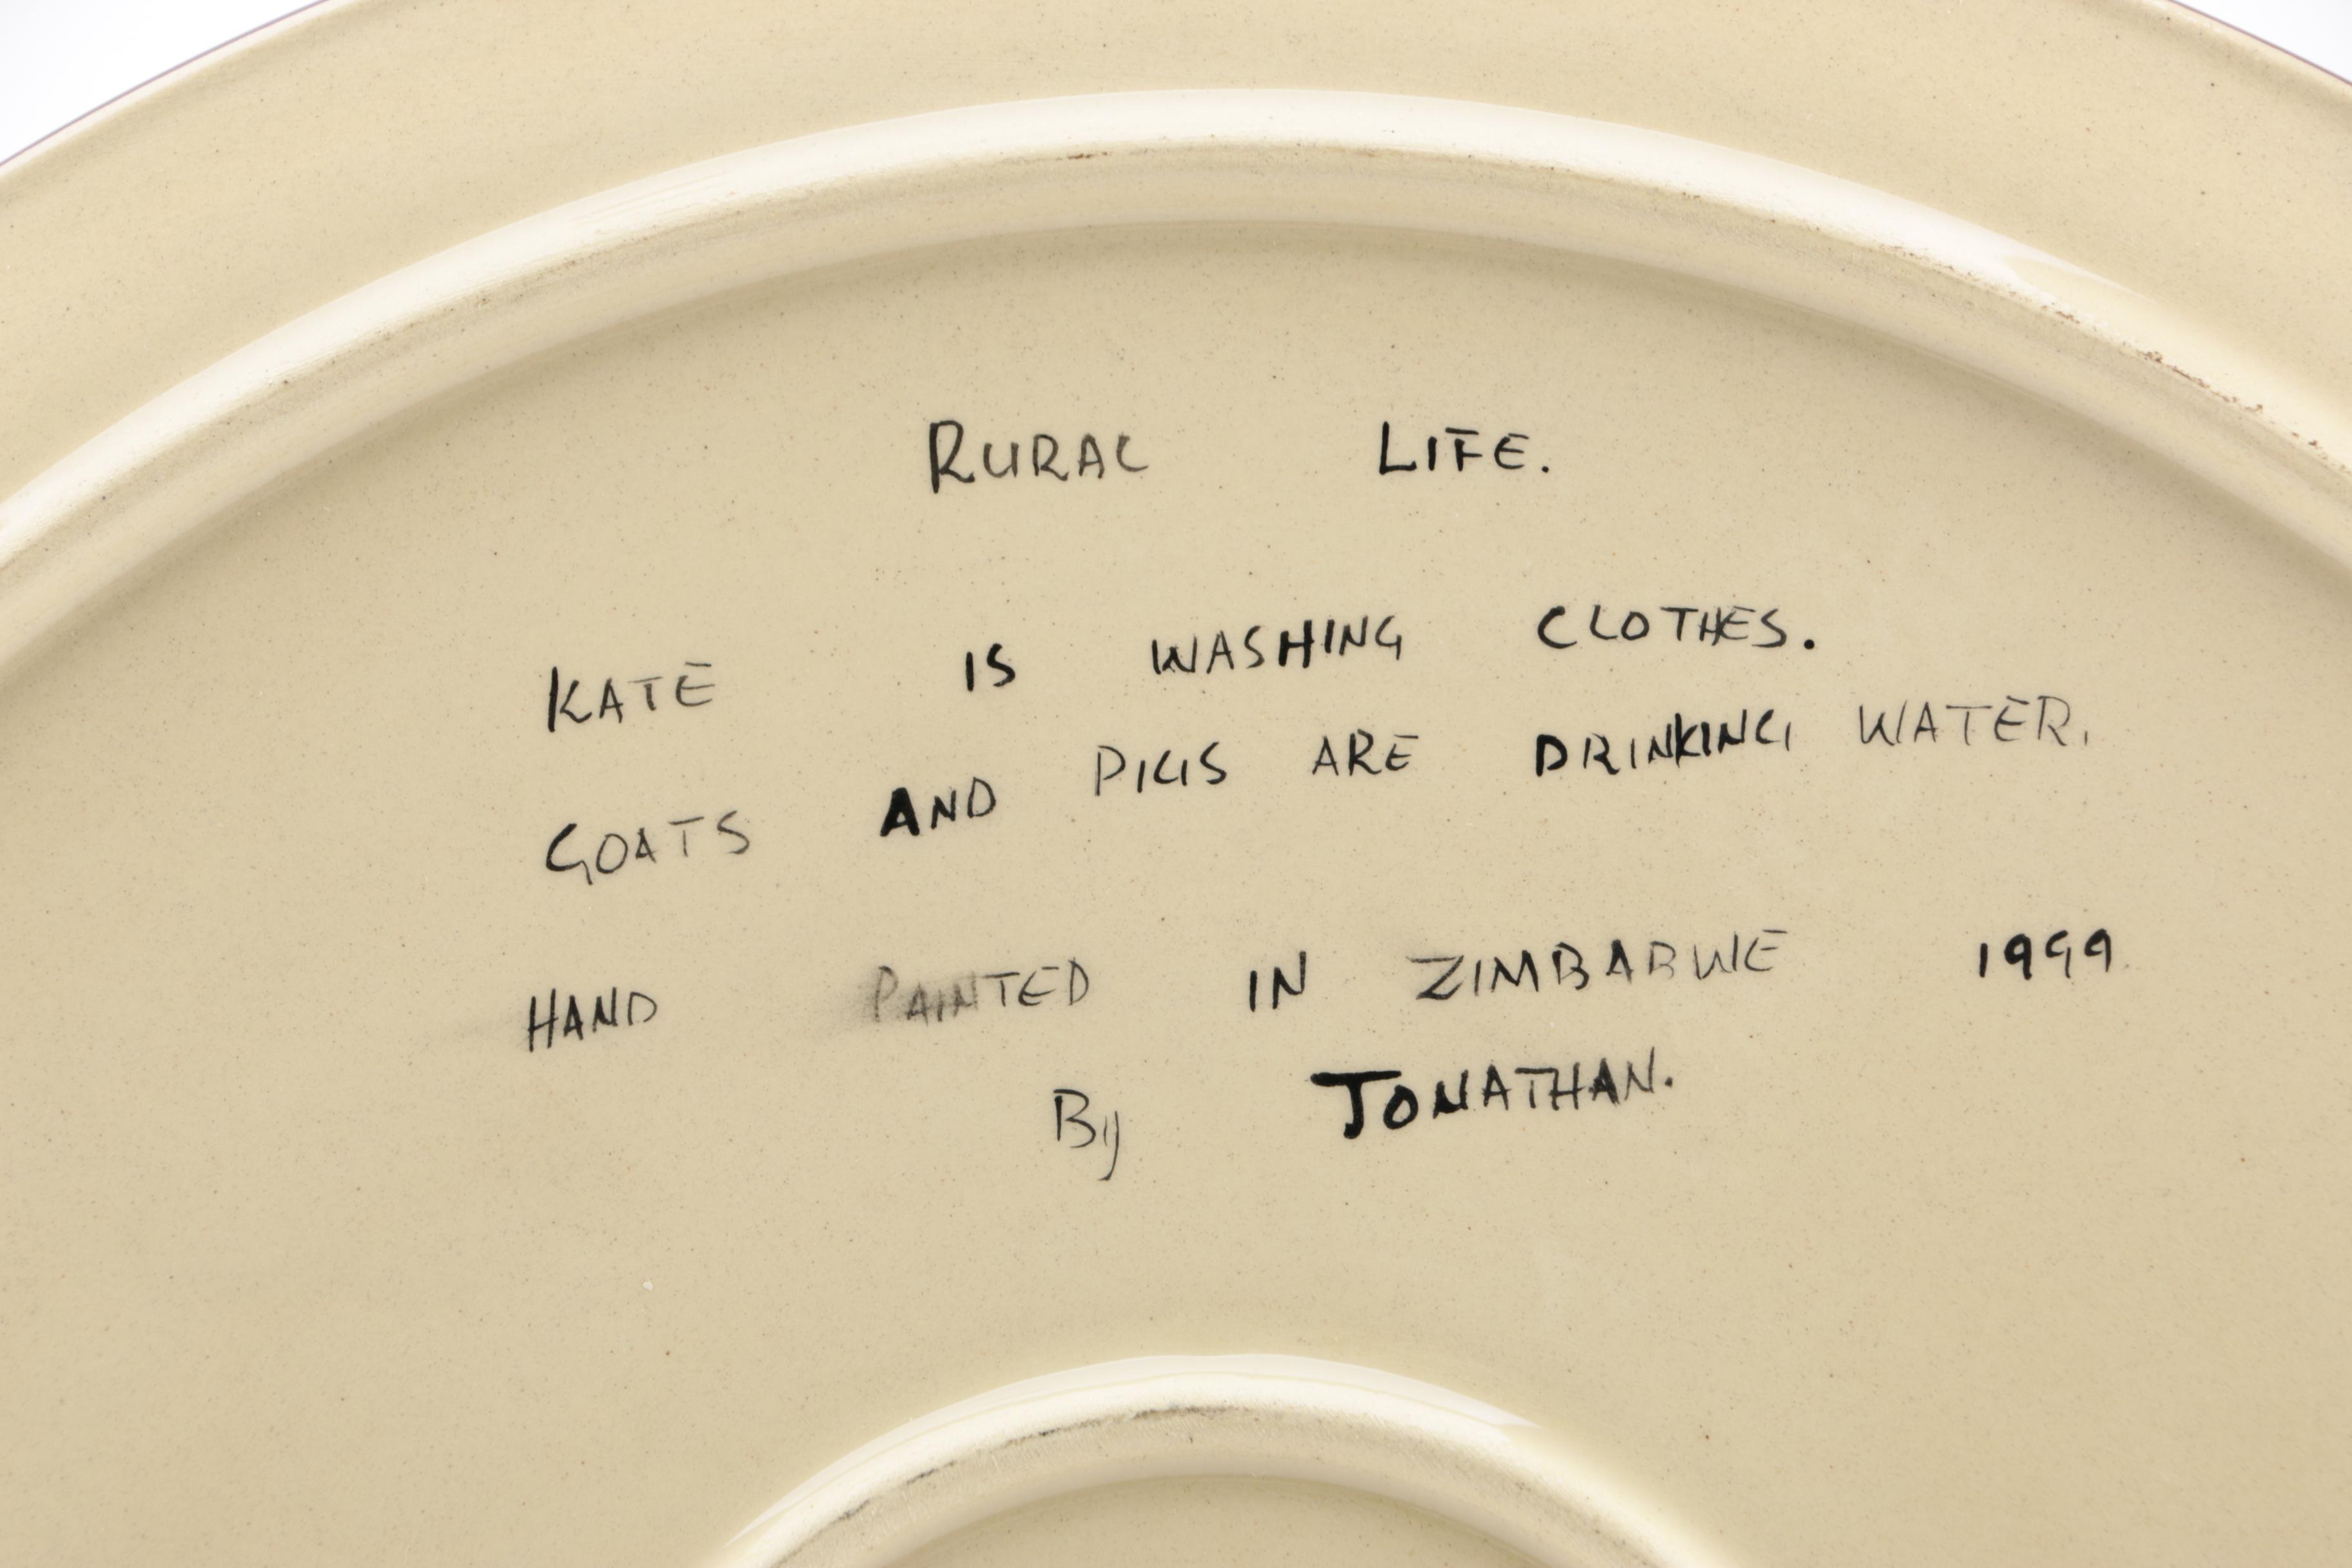 RURAL LIFE.
KATE IS WASHING CLOTHES.
GOATS AND PIGS ARE DRINKING WATER.
HAND PAINTED IN ZIMBABWE 1999
By JONATHAN.